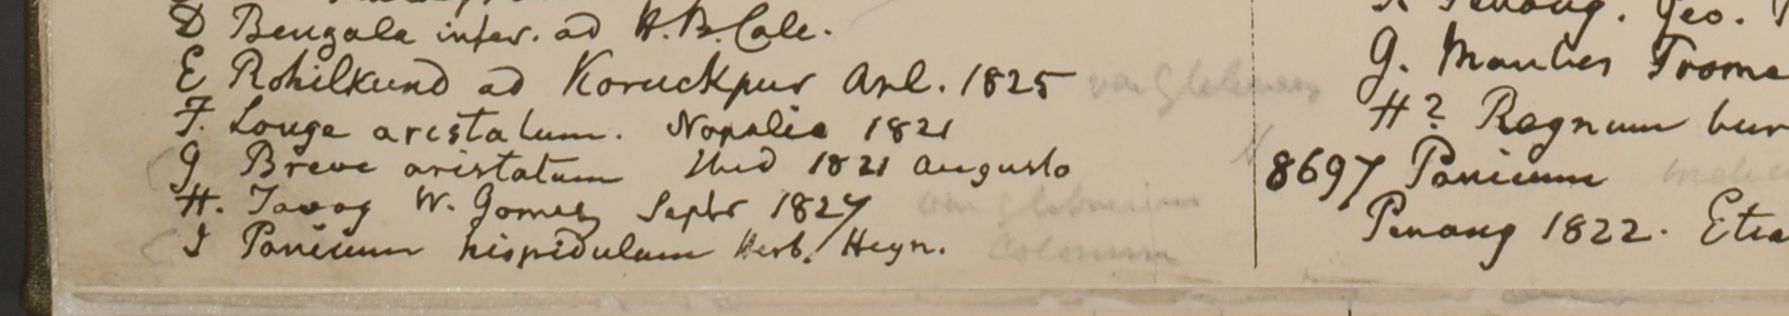 D Bengala infer. ad H.B. Calc.
E Rohilkund ad Koruckpur Apl. 1825
F. Longe aristatum. Napalia 1821
G Breve aristatum Ibid 1821 Augusto
H. Tavoy W. Gomez Septr 1827
I Panicum hispidulum Herb. Heyn.
Penang. Geo.
G.
H? Regnum bur
8697 Panicum
Penang 1822. Etia